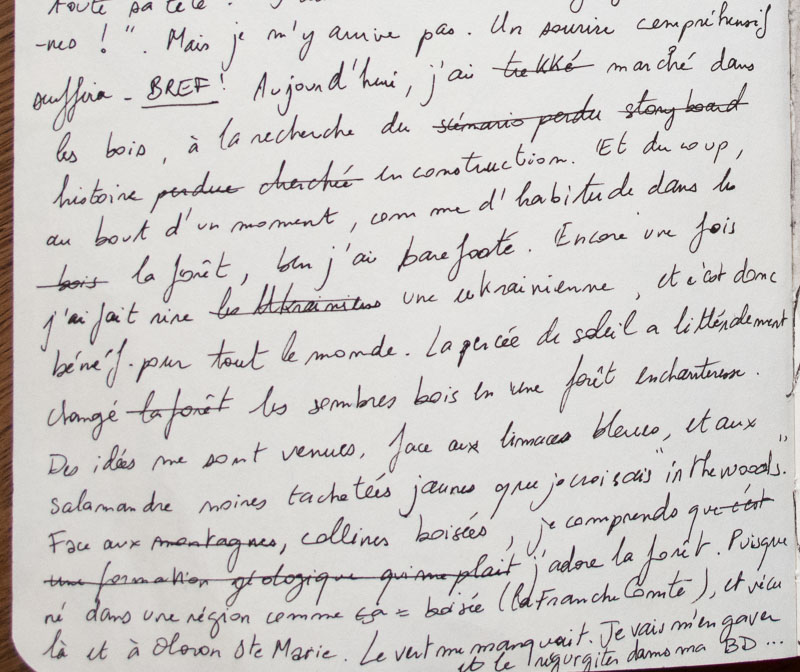 toute sa tête
-nes ! ". Mais je m'y arrive pas. Un sourire compréhensif
suffira - BREF ! Aujourd'hui, j'ai trekké marché dans
les bois, à la recherche du scénario perdu story board
histoire perdue cherchée en construction. Et du coup,
au bout d'un moment, comme d'habitude dans les
bois la forêt, ben j'ai barefooté. Encore une fois
j'ai fait rire les Ukrainiens une ukrainienne, et c'est donc
bénéf. pour tout le monde. La percée de soleil a littéralement
changé la forêt les sombres bois en une forêt enchanteresse.
Des idées me sont venues, face aux limaces bleues, et aux
salamandre noires tachetées jaunes que je croisais "in the woods".
Face aux montagnes, collines boisées, je comprends que c'est
une formation géologique qui me plait j'adore la forêt. Puisque
né dans une région comme ça = boisée (la Franche Comté), et vécu
là et à Oloron Ste Marie. Le vert me manquait. Je vais m'en gaver
et le régurgiter dans ma BD ...